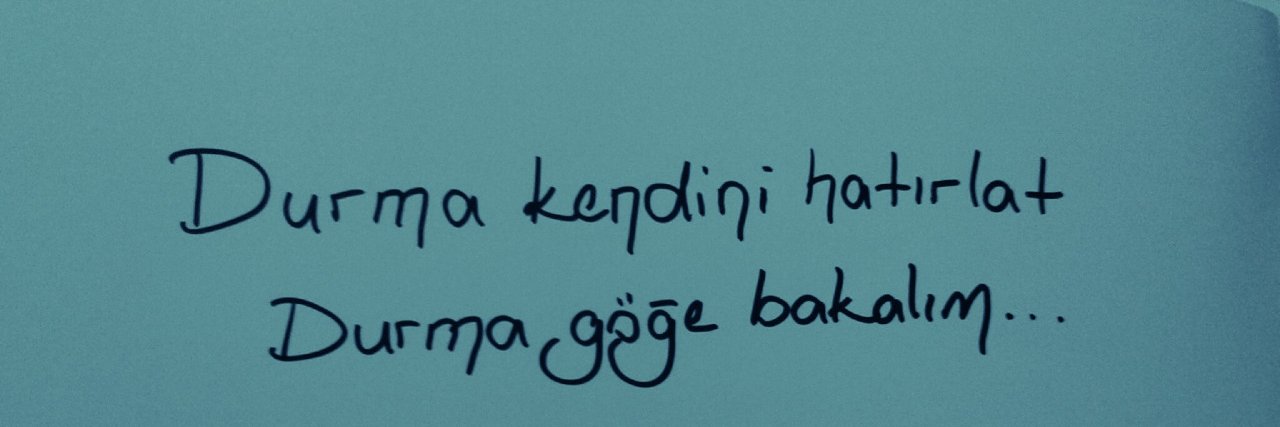 Durma kendini hatırlat
Durma göğe bakalım...